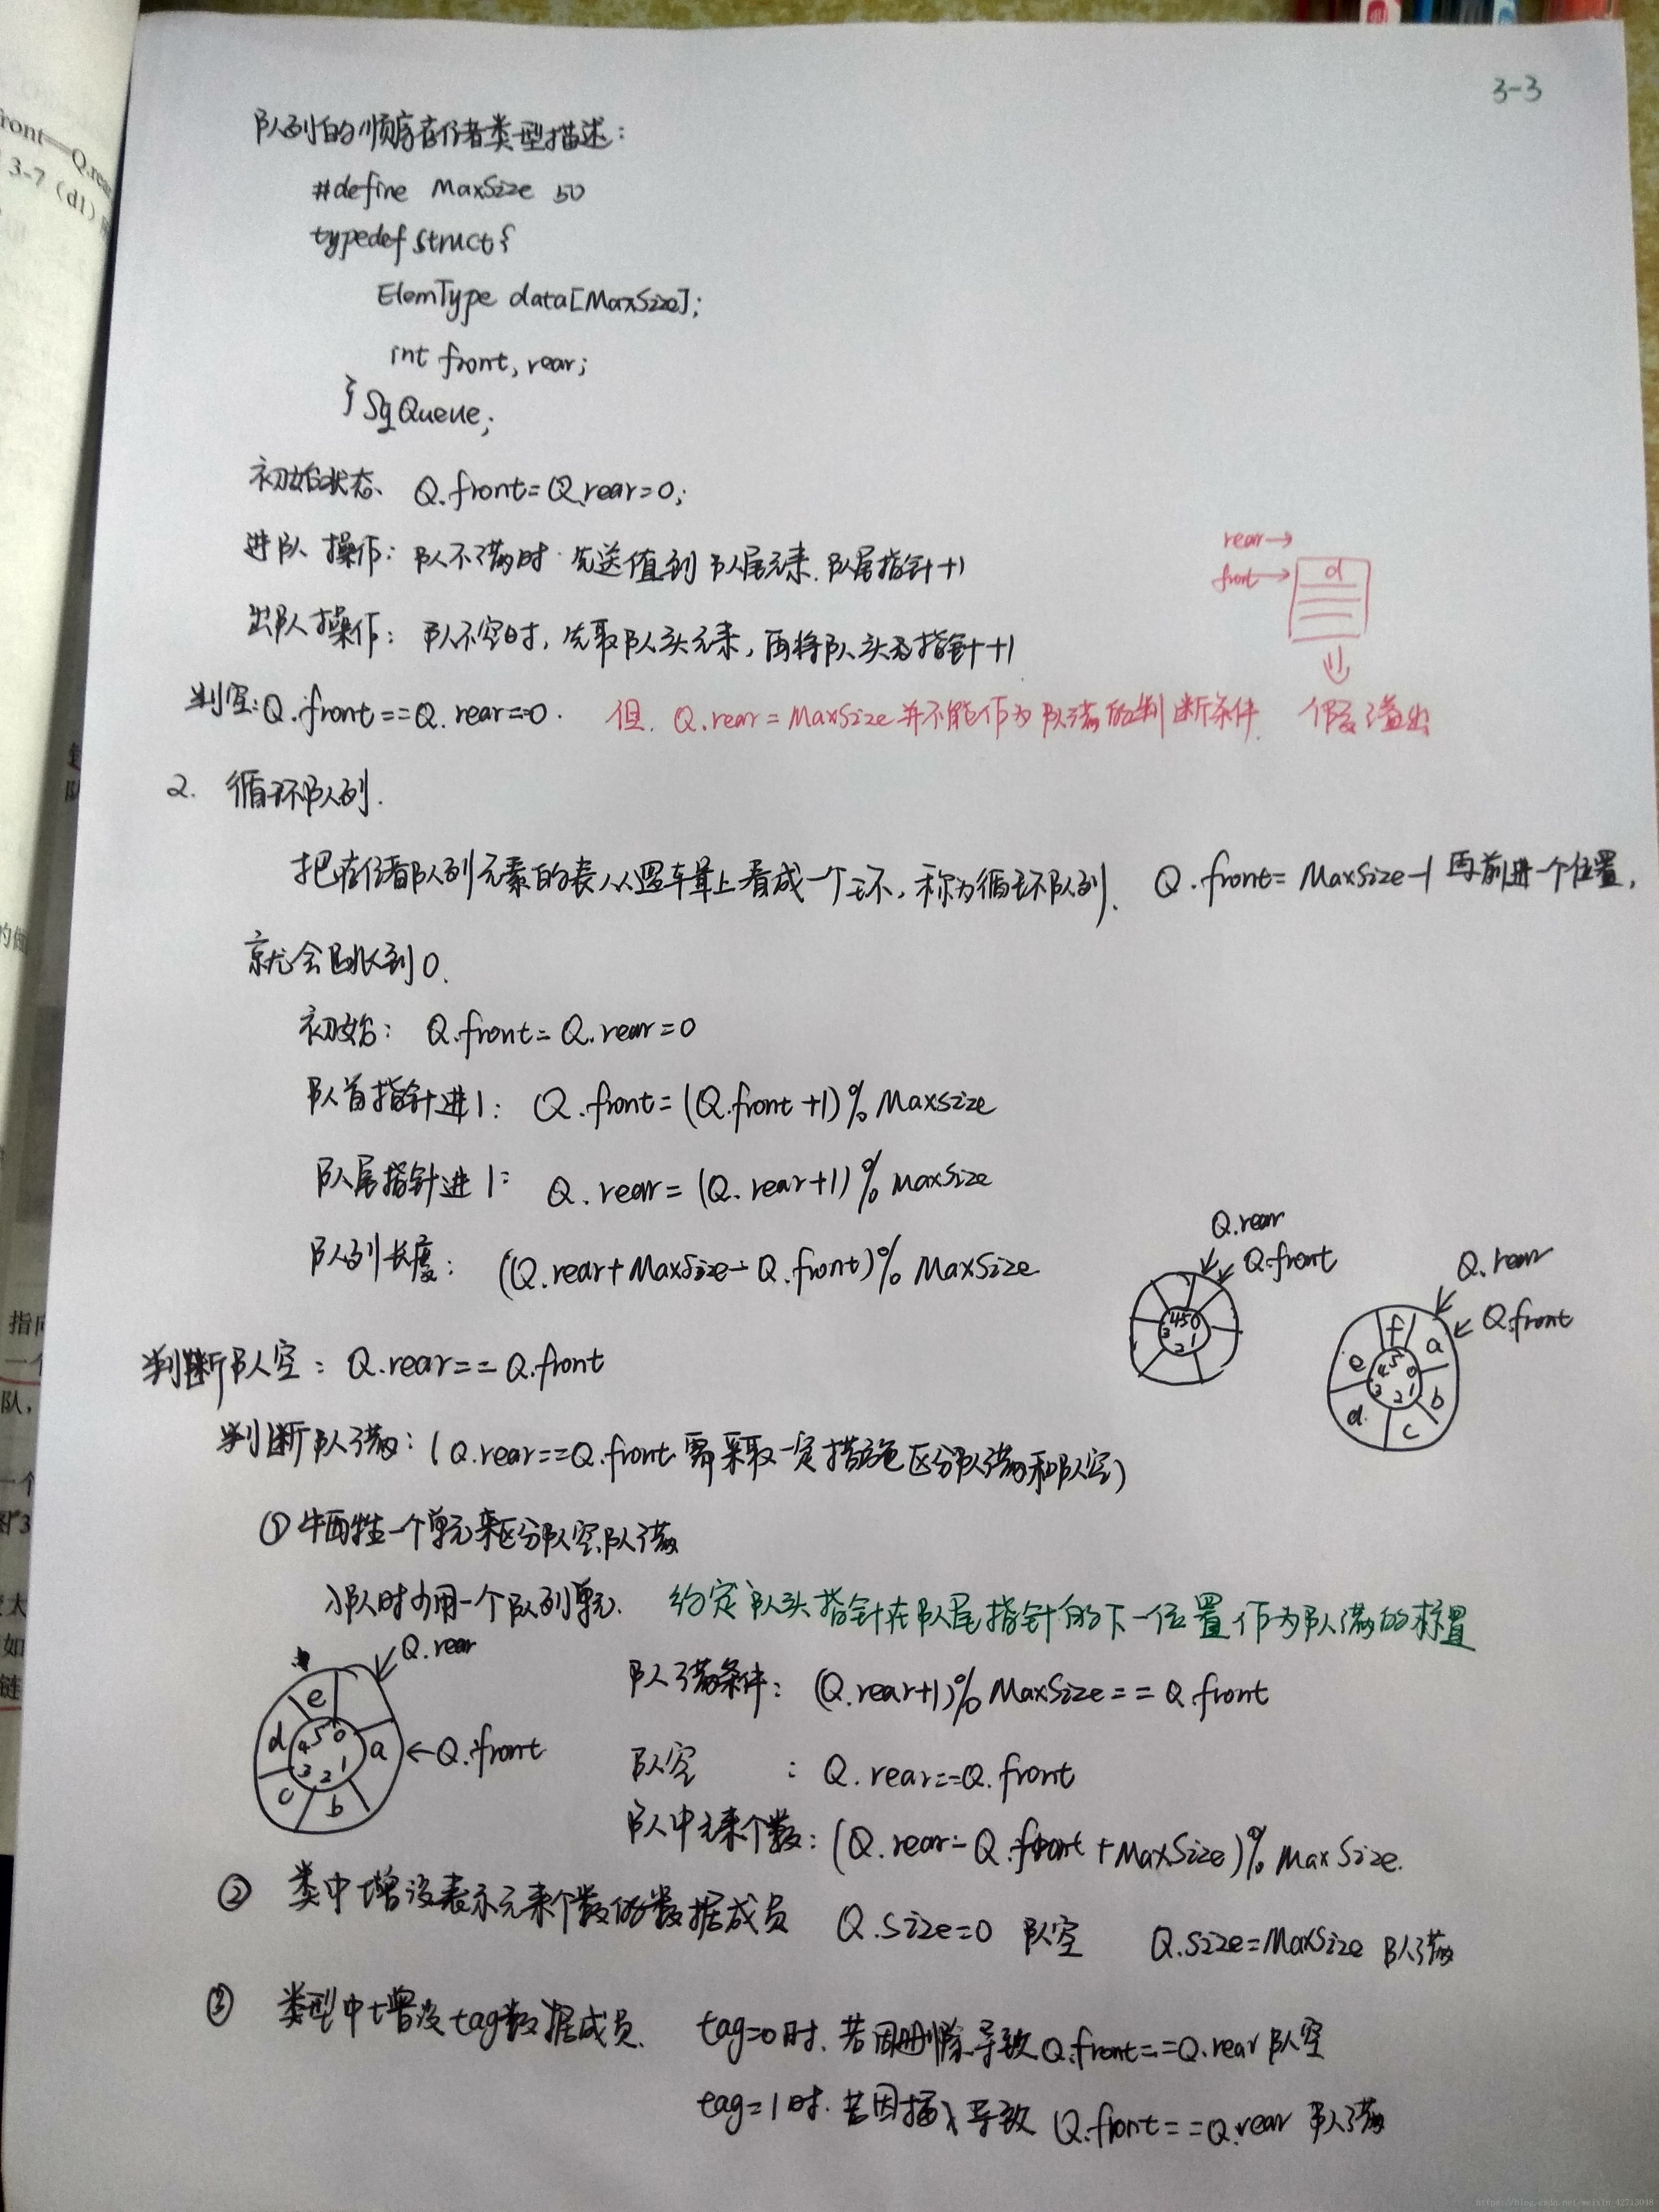 3-3
队列的顺序存储类型描述：
#define MaxSize 50
typedef struct{
ElemType data[MaxSize];
int front, rear;
}SqQueue;
初始状态、 Q.front=Q.rear=0;
进队操作：队不满时·先送值到队尾元素.队尾指针+1
出队操作：队不空时，先取队头元素，再将队头指针+1
rear→
front→
d
判空：Q.front==Q.rear==0. 但. Q.rear=MaxSize并不能作为队满的判断条件. 假溢出
2. 循环队列.
把存储队列元素的表从逻辑上看成一个环，称为循环队列. Q.front=MaxSize-1再前进一个位置，
就会自动到0.
初始： Q.front=Q.rear=0
队首指针进1： Q.front=(Q.front+1)%MaxSize
队尾指针进1： Q.rear=(Q.rear+1)%MaxSize
队列长度： (Q.rear+MaxSize-Q.front)%MaxSize
Q.rear
Q.front
0 1 2 3 4 5
Q.rear
Q.front
a b c d e f
0 1 2 3 4 5
判断队空：Q.rear==Q.front
判断队满：(Q.rear==Q.front需采取一定措施区分队满和队空)
① 牺牲一个单元来区分队空队满
入队时少用一个队列单元. 约定队头指针在队尾指针的下一位置作为队满的标置
Q.rear
Q.front
a b c d e
0 1 2 3 4 5
队满条件： (Q.rear+1)%MaxSize==Q.front
队空 ： Q.rear==Q.front
队中元素个数：(Q.rear-Q.front+MaxSize)%MaxSize.
② 类中增设表示元素个数的数据成员 Q.size=0 队空 Q.size=MaxSize 队满
③ 类型中增设tag数据成员. tag=0时.若因删除导致Q.front==Q.rear队空
tag=1时.若因插入导致 Q.front==Q.rear 队满
https://blog.csdn.net/weixin_42713048